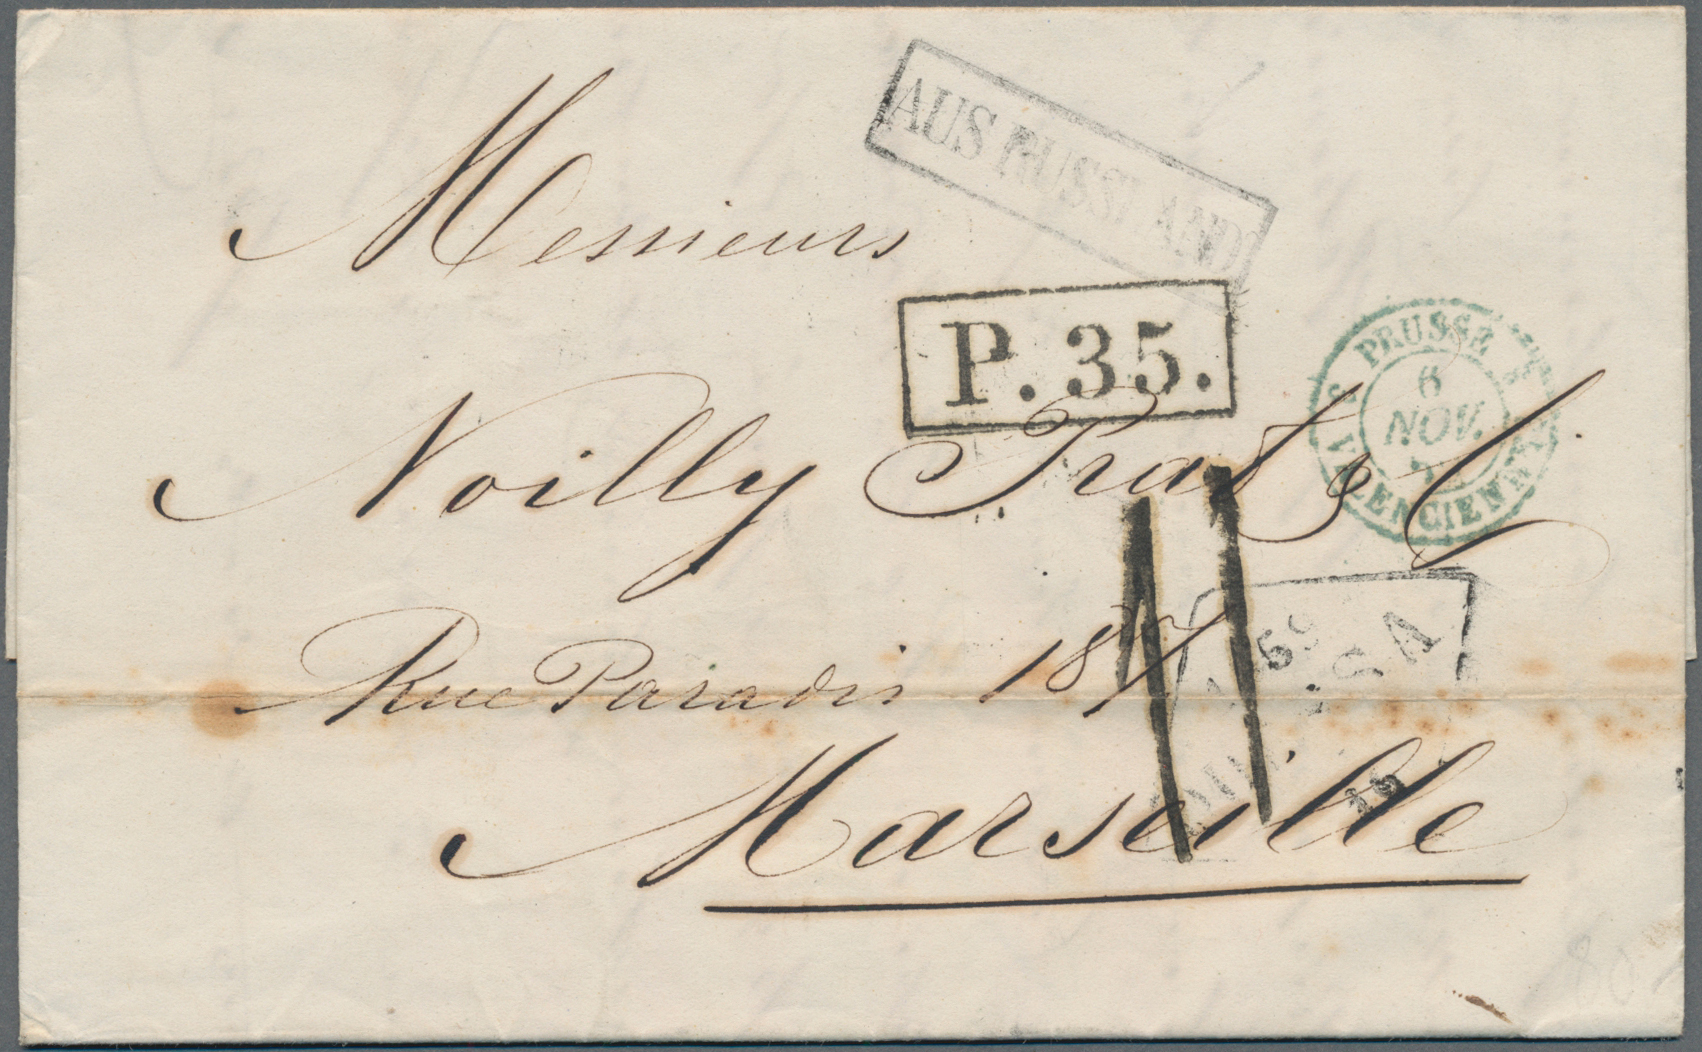 AUS RUSSLAND
Messieurs
P. 35.
PRUSSE
3
6
NOV.
VALENCIENNES
Noilly Prat & C
11
Rue Paradis
Marseille